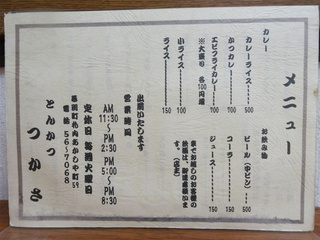 メニュー
カレー
カレーライス 500
かつカレー 700
エビフライカレー 700
※大盛り 各100円増
小ライス 100
ライス 150
お飲み物
ビール(中ビン) 500
コーラ 150
ジュース 150
車でお越しのお客様の
飲酒は、御遠慮願いま
す。(店主)
出前いたします
営業時間
AM 11:30〜PM 2:30
PM 5:00〜PM 8:30
定休日 毎週火曜日
札内あかしや町59
電話 56-7068
とんかつ
つかさ